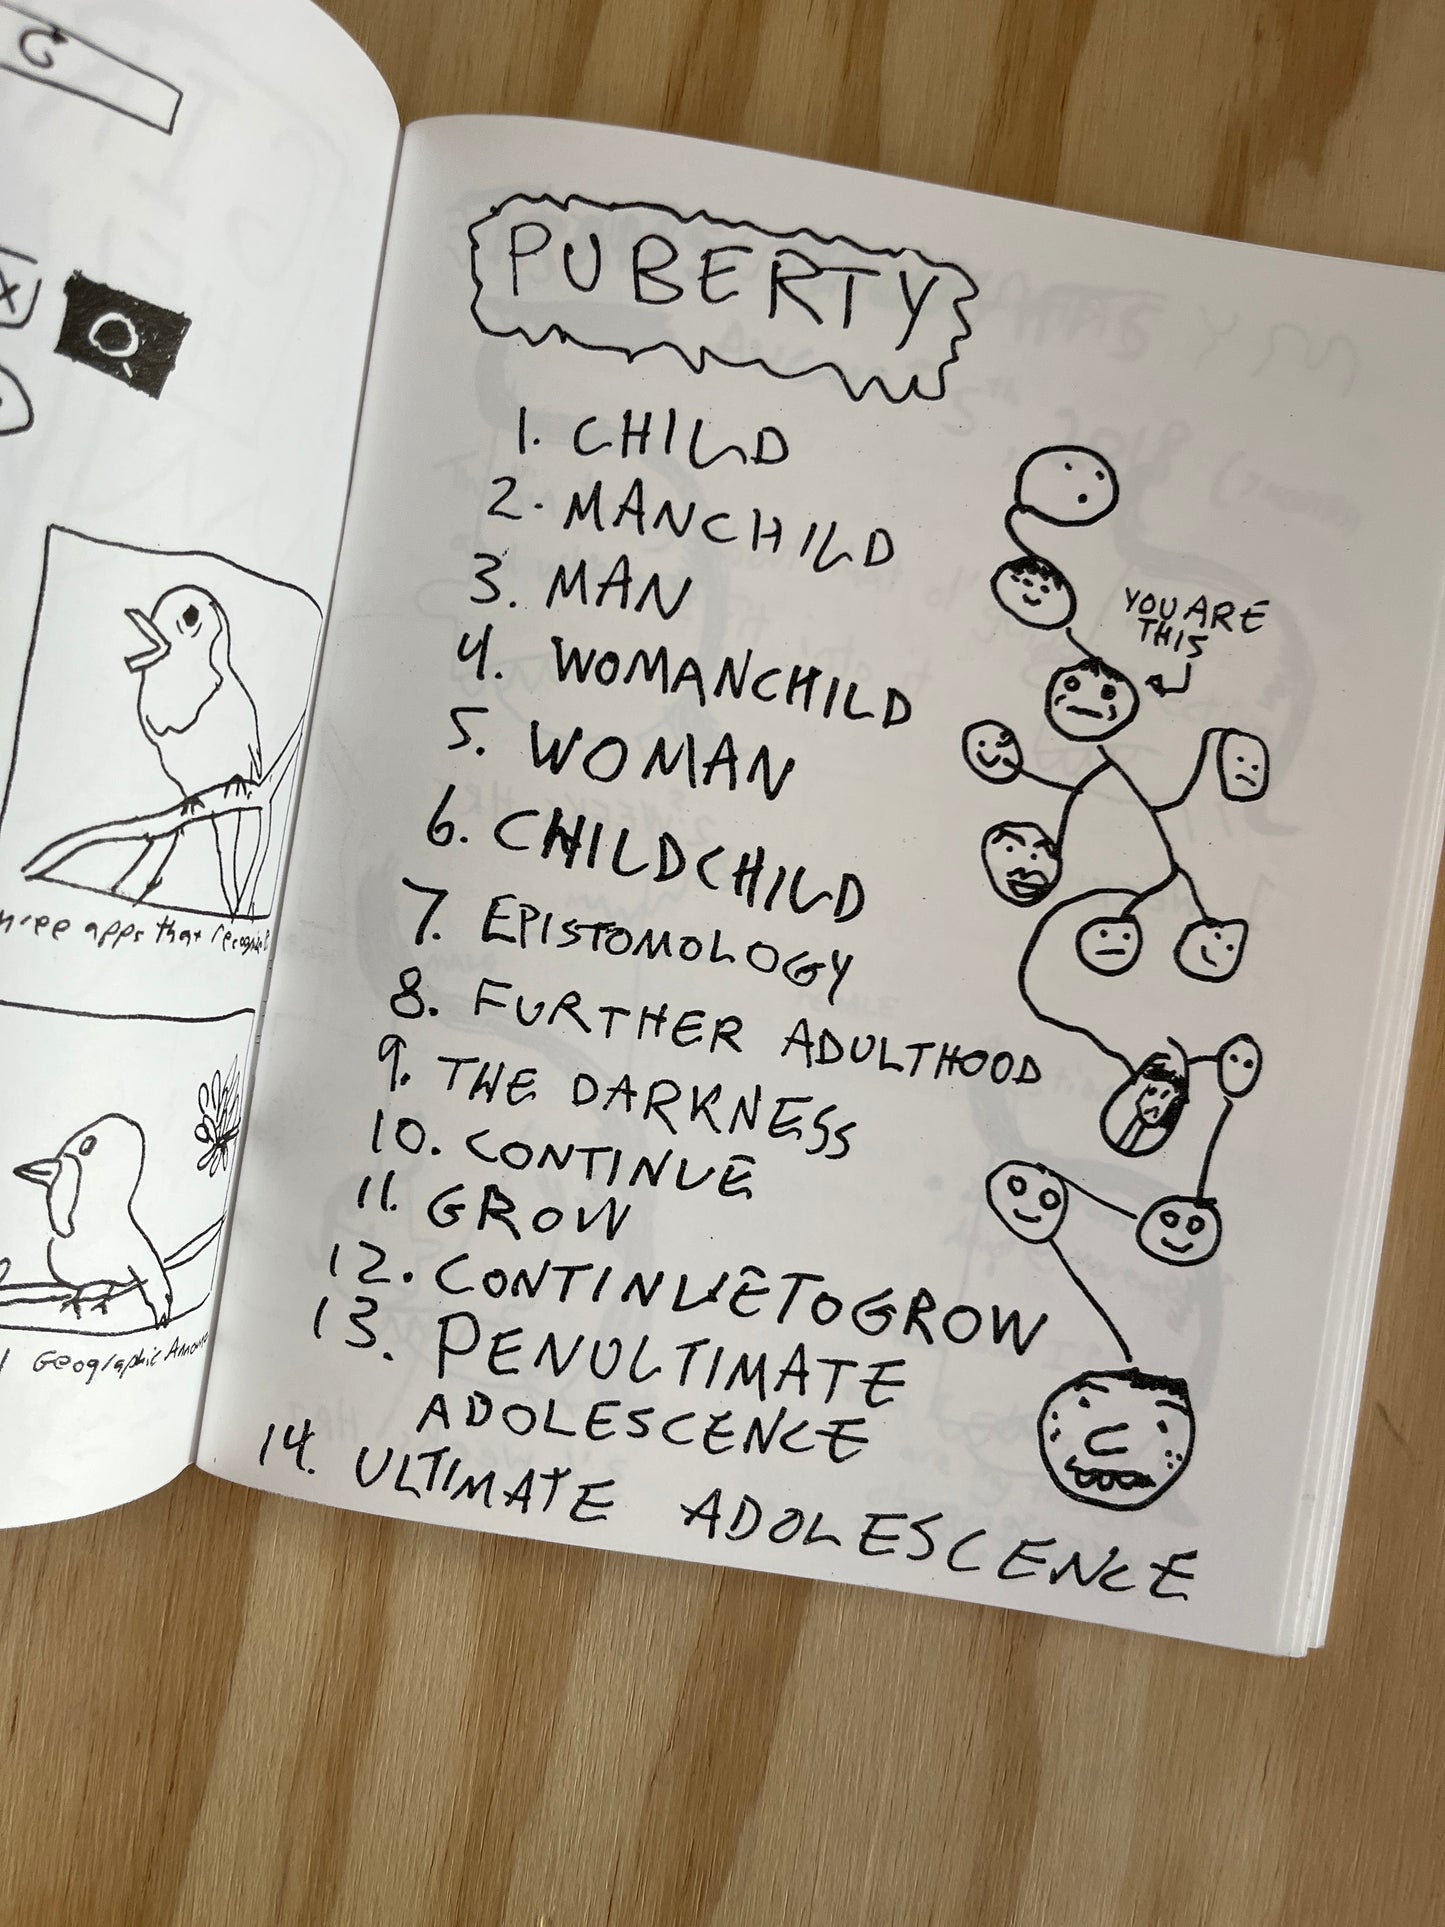 PUBERTY
1. CHILD
2. MANCHILD
3. MAN
4. WOMANCHILD
5. WOMAN
6. CHILDCHILD
7. EPISTOMOLOGY
8. FURTHER ADULTHOOD
9. THE DARKNESS
10. CONTINUE
11. GROW
12. CONTINUETOGROW
13. PENULTIMATE
ADOLESCENCE
14. ULTIMATE ADOLESCENCE
YOU ARE
THIS
apps that
Geographic